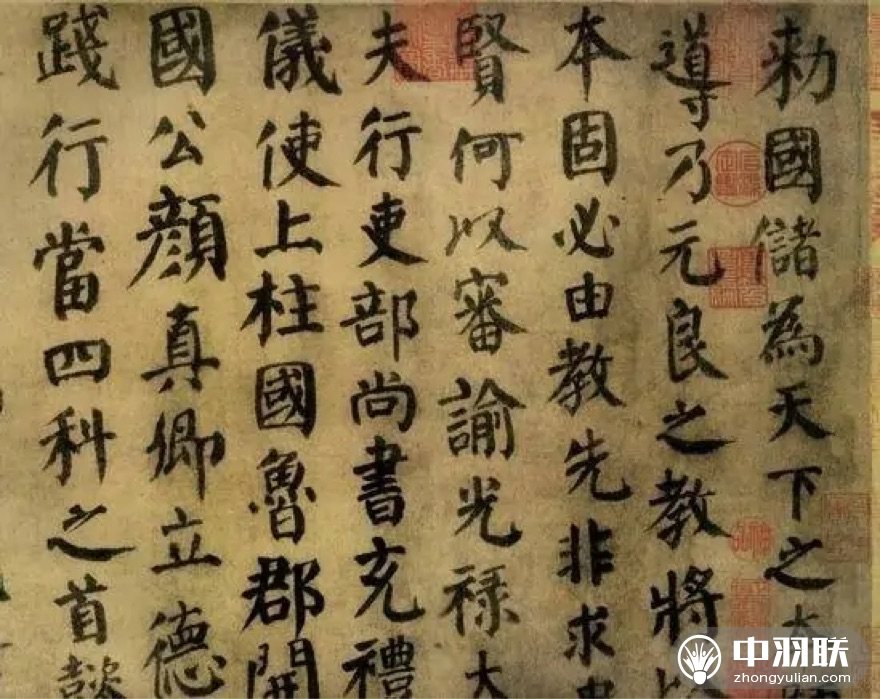 勅國儲為天下之本
導乃元良之教將以
本固必由教先非求忠
賢何以審諭光禄大
夫行吏部尚書充禮
儀使上柱國魯郡開
國公顔真卿立德
踐行當四科之首懿
中羽联
zhongyulian.com